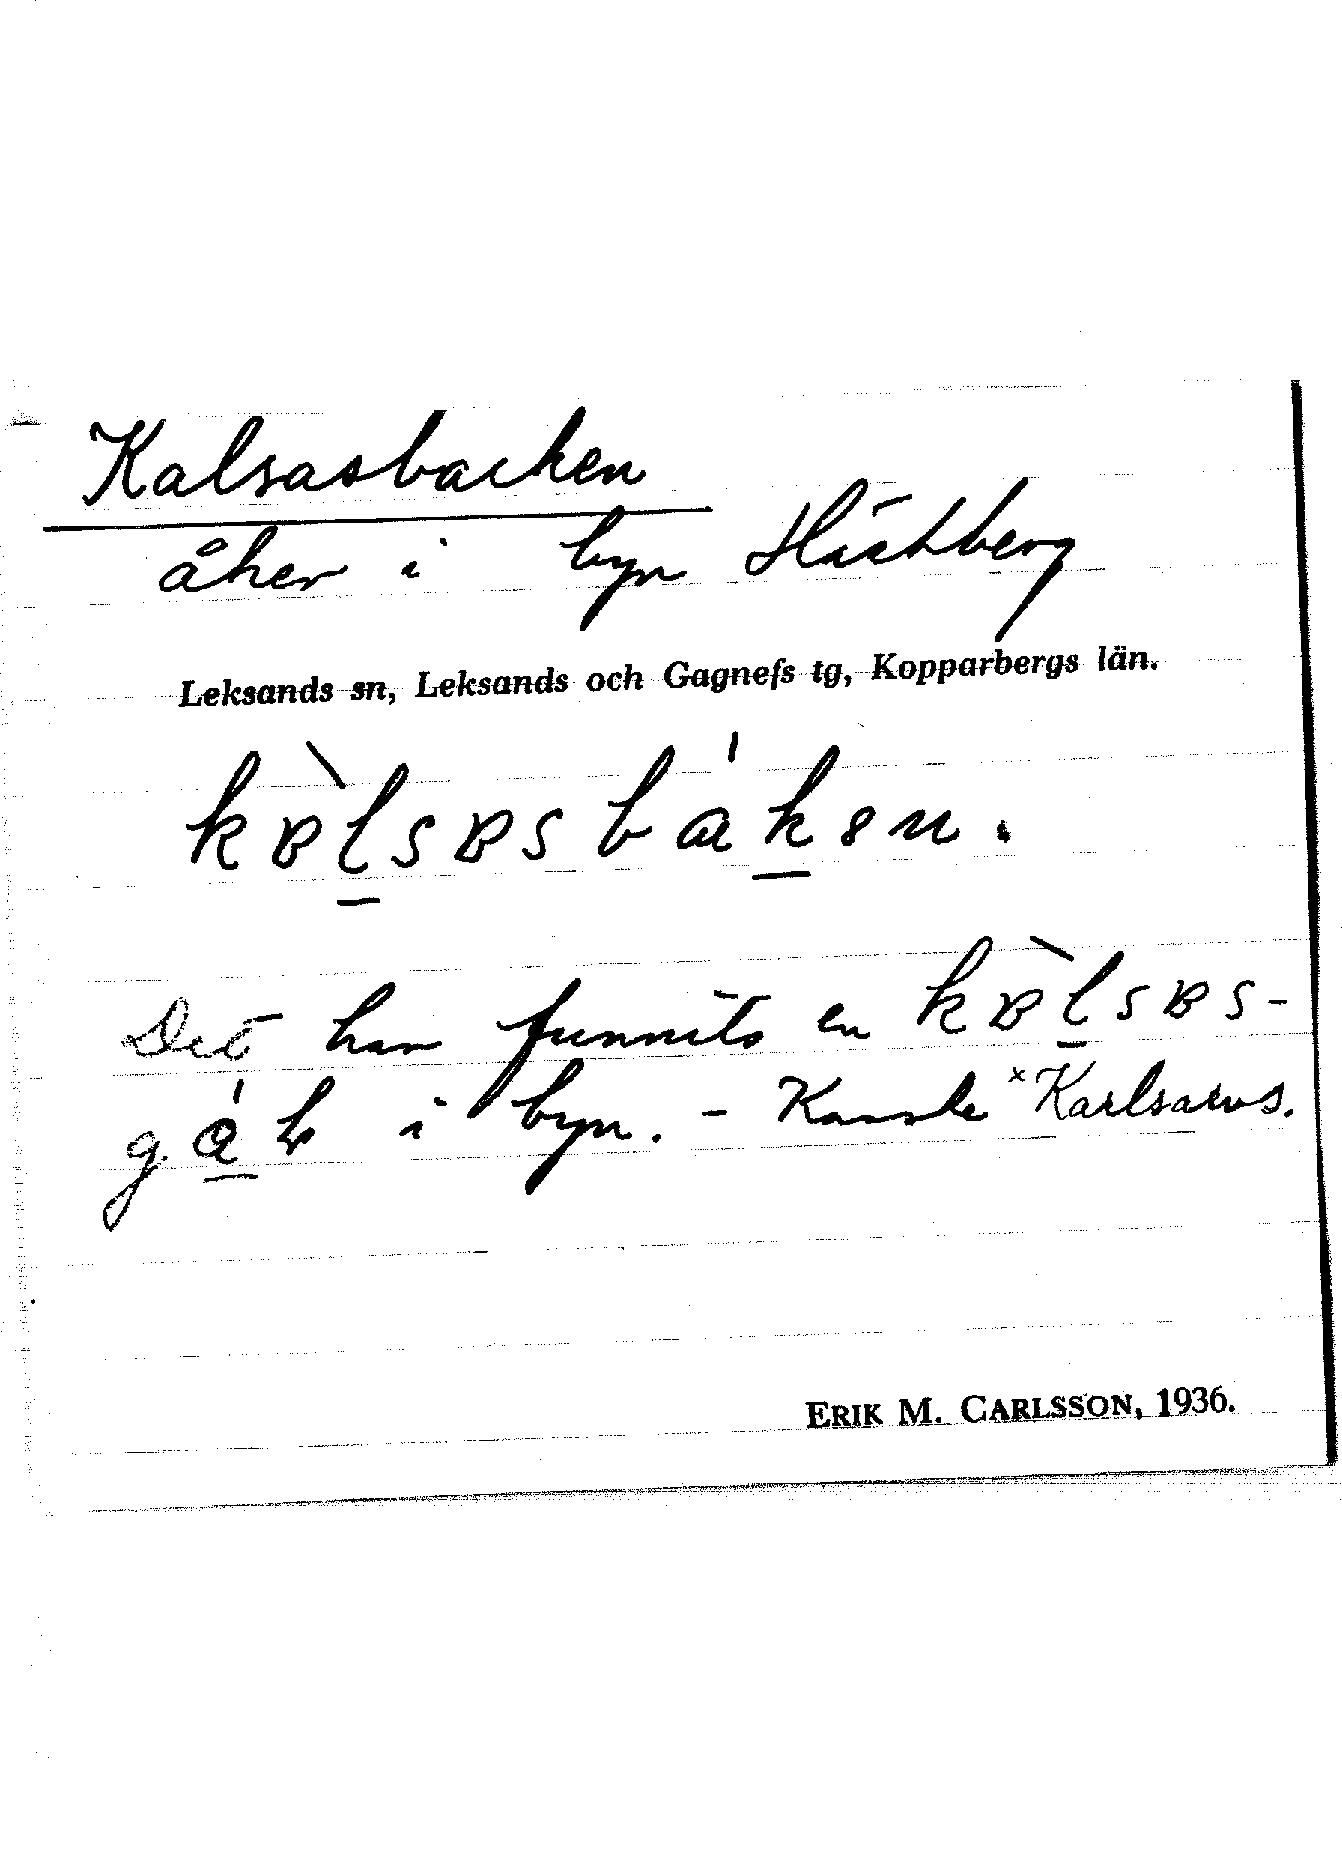 Kalsasbacken
åker i byn Hästberg
Leksands sn, Leksands och Gagnefs tg, Kopparbergs län.
kɒ̀lsɒsbákən.
Det har funnits en kɒ̀lsɒs-
i byn. – Kanske ˣKarlsarvs.
ERIK M. CARLSSON, 1936.